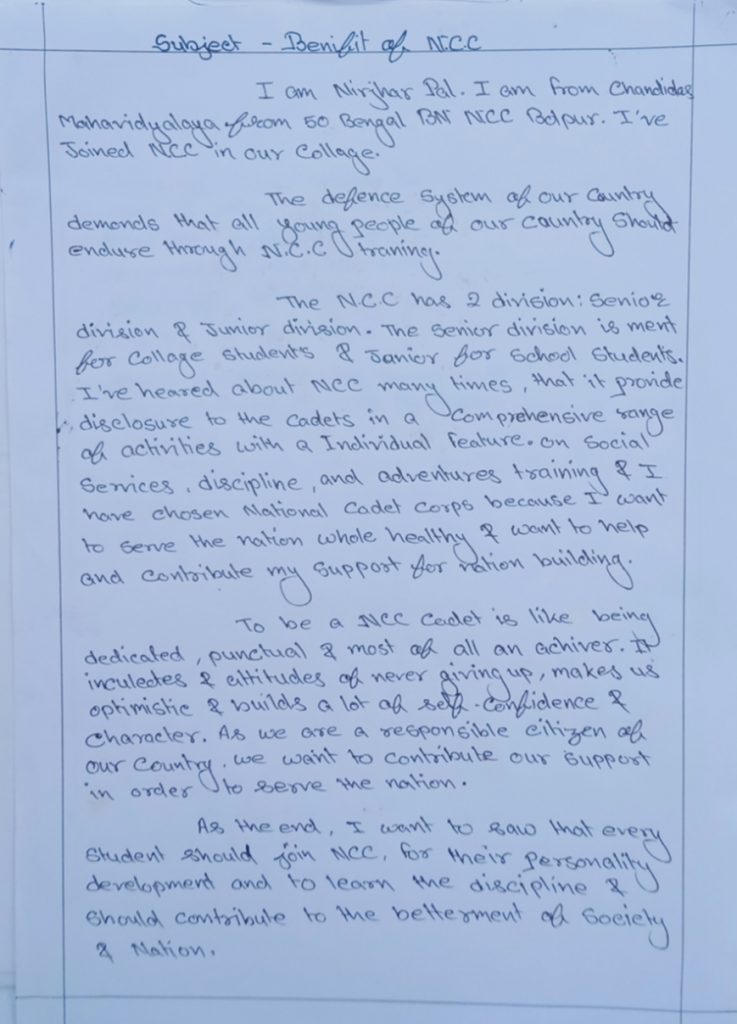 Subject - Benifit of N.C.C
I am Nirjhar Pal. I am from Chandidas
Mahavidyalaya from 50 Bengal BN NCC Bolpur. I've
Joined NCC in our Collage.
The defence System of our Country
demands that all young people of our country Should
enduse through N.C.C traning.
The N.C.C has 2 division: Senior
division & Junior division. The Senior division is ment
for Collage students & Janior for School Students.
I've heared about NCC many times, that it provide
disclosure to the cadets in a Comprehensive range
of activities with a Individual feature. on Social
Services, discipline, and adventures training & I
have chosen National Cadet Corps because I want
to serve the nation whole healthy & want to help
and contribute my Support for nation building.
To be a NCC Cadet is like being
dedicated, punctual & most of all an achiver. It
inculedes & altitudes of never giving up, makes us
optimistic & builds a lot of self-confidence &
Character. As we are a responsible citizen of
our Country, we want to contribute our Support
in order to serve the nation.
As the end, I want to saw that every
Student should join NCC, for their personality
development and to learn the discipline &
Should contribute to the betterment of Society
& Nation.